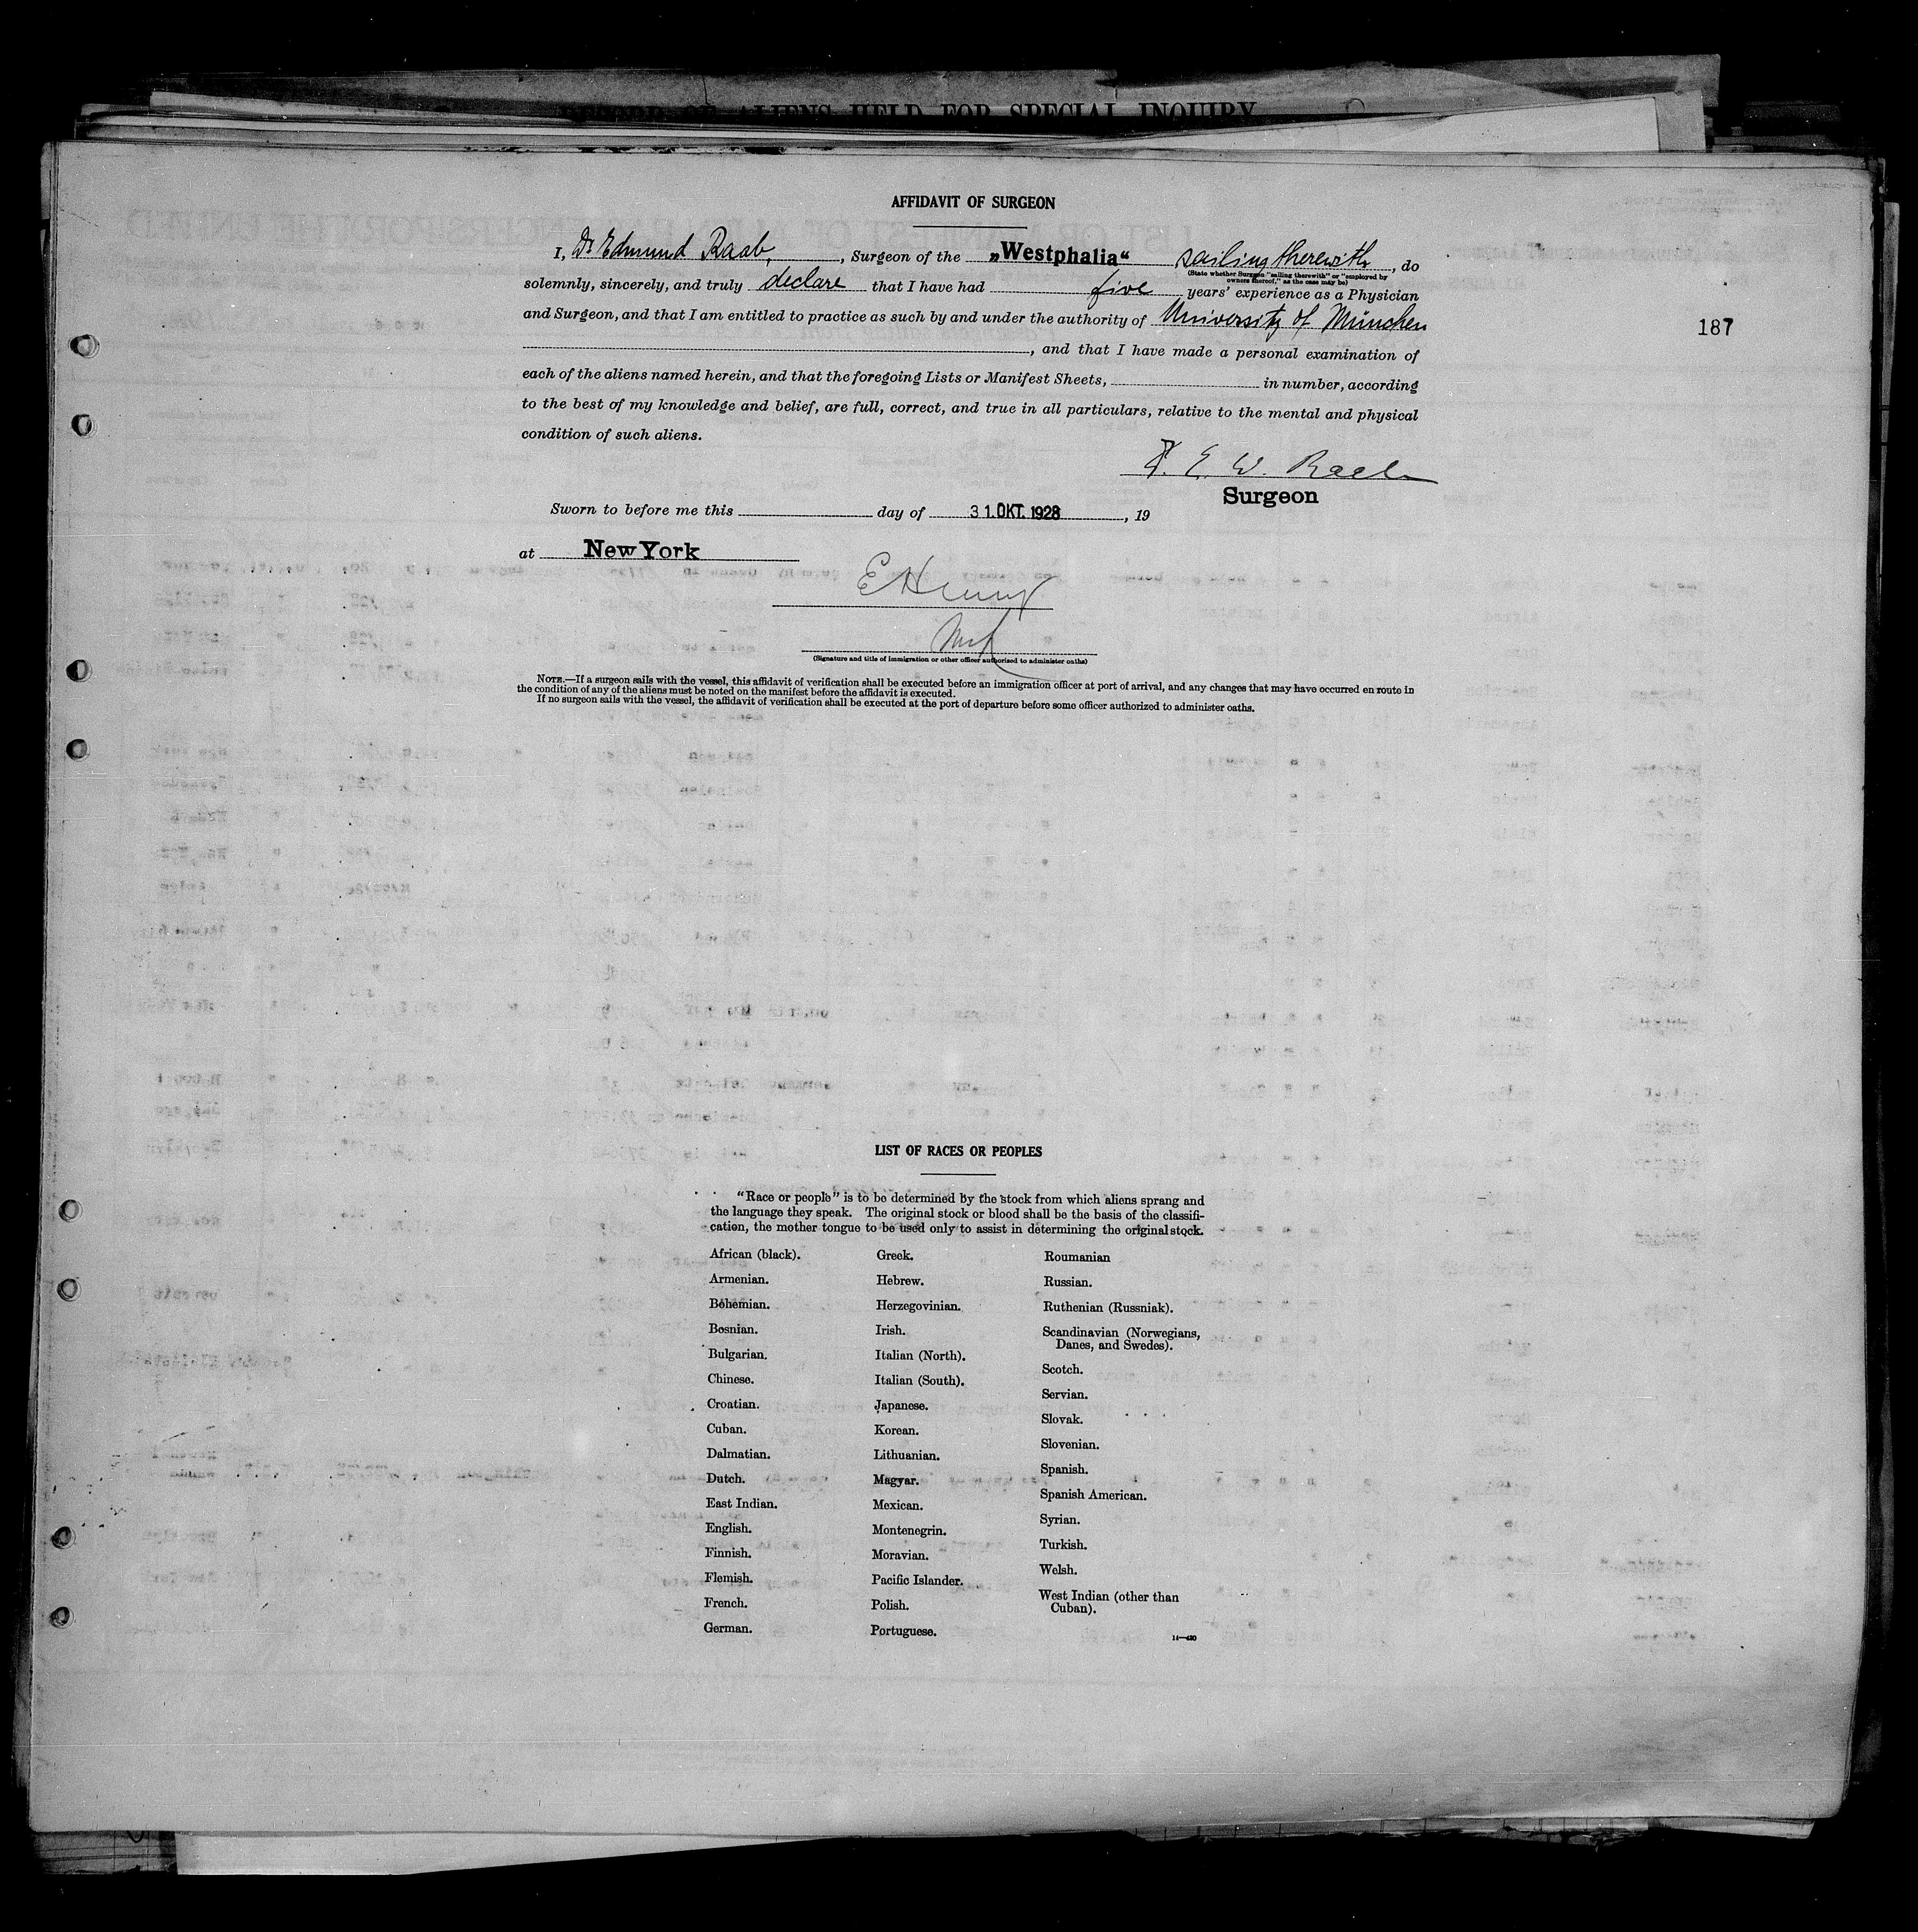 RECORD OF ALIENS HELD FOR SPECIAL INQUIRY
AFFIDAVIT OF SURGEON
I, Dr Edmund Raab, Surgeon of the „Westphalia“ sailing therewith, do
(State whether Surgeon "sailing therewith" or "employed by
owners thereof," as the case may be)
solemnly, sincerely, and truly declare that I have had five years' experience as a Physician
and Surgeon, and that I am entitled to practice as such by and under the authority of University of München
187
, and that I have made a personal examination of
each of the aliens named herein, and that the foregoing Lists or Manifest Sheets, in number, according
to the best of my knowledge and belief, are full, correct, and true in all particulars, relative to the mental and physical
condition of such aliens.
Dr. E. W. Raab
Surgeon
Sworn to before me this day of 31. OKT. 1928, 19
at New York
(Signature and title of immigration or other officer authorized to administer oaths)
NOTE.—If a surgeon sails with the vessel, this affidavit of verification shall be executed before an immigration officer at port of arrival, and any changes that may have occurred en route in
the condition of any of the aliens must be noted on the manifest before the affidavit is executed.
If no surgeon sails with the vessel, the affidavit of verification shall be executed at the port of departure before some officer authorized to administer oaths.
LIST OF RACES OR PEOPLES
"Race or people" is to be determined by the stock from which aliens sprang and
the language they speak. The original stock or blood shall be the basis of the classifi-
cation, the mother tongue to be used only to assist in determining the original stock.
African (black).
Armenian.
Bohemian.
Bosnian.
Bulgarian.
Chinese.
Croatian.
Cuban.
Dalmatian.
Dutch.
East Indian.
English.
Finnish.
Flemish.
French.
German.
Greek.
Hebrew.
Herzegovinian.
Irish.
Italian (North).
Italian (South).
Japanese.
Korean.
Lithuanian.
Magyar.
Mexican.
Montenegrin.
Moravian.
Pacific Islander.
Polish.
Portuguese.
Roumanian
Russian.
Ruthenian (Russniak).
Scandinavian (Norwegians,
Danes, and Swedes).
Scotch.
Servian.
Slovak.
Slovenian.
Spanish.
Spanish American.
Syrian.
Turkish.
Welsh.
West Indian (other than
Cuban).